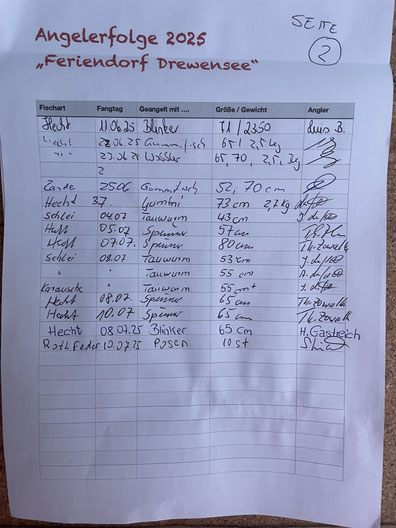 SEITE
2
Angelerfolge 2025
„Feriendorf Drewensee“
Fischart Fangtag Geangelt mit .... Größe / Gewicht Angler
Hecht 11.06.25 Blinker 71 / 2350 B.
Hecht 22.06.25 Gummifisch 65 / 2,5 kg
23.06.25 65, 70, 2,5, 3kg
2
Zander 2506 Gummifisch 52, 70 cm
Hecht 3.7. Gummi 73 cm 2,7 kg
Schlei 04.07 Tauwurm 43 cm
Hecht 05.07 Spinner 57 cm
Hecht 07.07. Spinner 80cm Th. Zowalk
Schlei 08.07 Tauwurm 53 cm
" " Tauwurm 55 cm
Karausche " Tauwurm 55 cm
Hecht 08.07 Spinner 65 cm Th. Zowalk
Hecht 10.07 Spinner 65 cm Th. Zowalk
Hecht 08.07.25 Blinker 65 cm H. Gastreich
Rothfeder 10.07.25 Posen 10 st